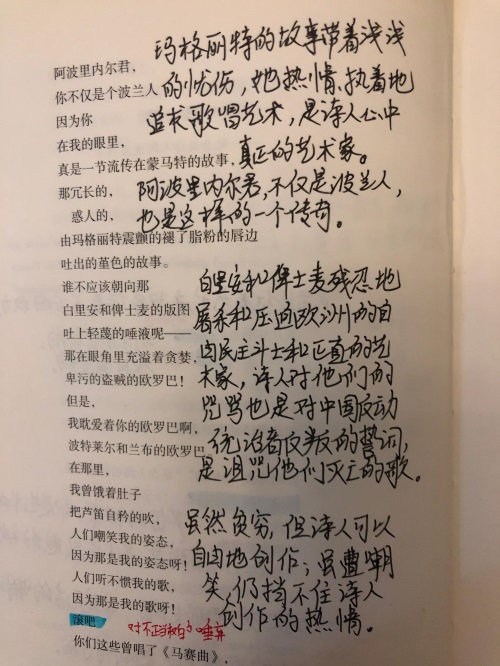 玛格丽特的故事带着浅浅
阿波里内尔君,
你不仅是个波兰人 的忧伤,她热情、执着地
因为你 追求歌唱艺术,是诗人心中
在我的眼里,
真是一节流传在蒙马特的故事, 真正的艺术家。
那冗长的, 阿波里内尔君,不仅是波兰人,
惑人的, 也是这样的一个传奇。
由玛格丽特震颤的褪了脂粉的唇边
吐出的堇色的故事。
谁不应该朝向那 白里安和俾士麦残忍地
白里安和俾士麦的版图 屠杀和压迫欧洲的自
吐上轻蔑的唾液呢——
那在眼角里充溢着贪婪, 由民主斗士和正直的艺
卑污的盗贼的欧罗巴! 术家,诗人对他们的
但是, 咒骂也是对中国反动
我耽爱着你的欧罗巴啊,
波特莱尔和兰布的欧罗巴 统治者反叛的誓词,
在那里, 是诅咒他们灭亡的歌。
我曾饿着肚子
把芦笛自矜的吹, 虽然贫穷,但诗人可以
人们嘲笑我的姿态,
因为那是我的姿态呀! 自由地创作;虽遭嘲
人们听不惯我的歌, 笑,仍挡不住诗人
因为那是我的歌呀! 创作的热情。
滚吧 对不正当的唾弃
你们这些曾唱了《马赛曲》,